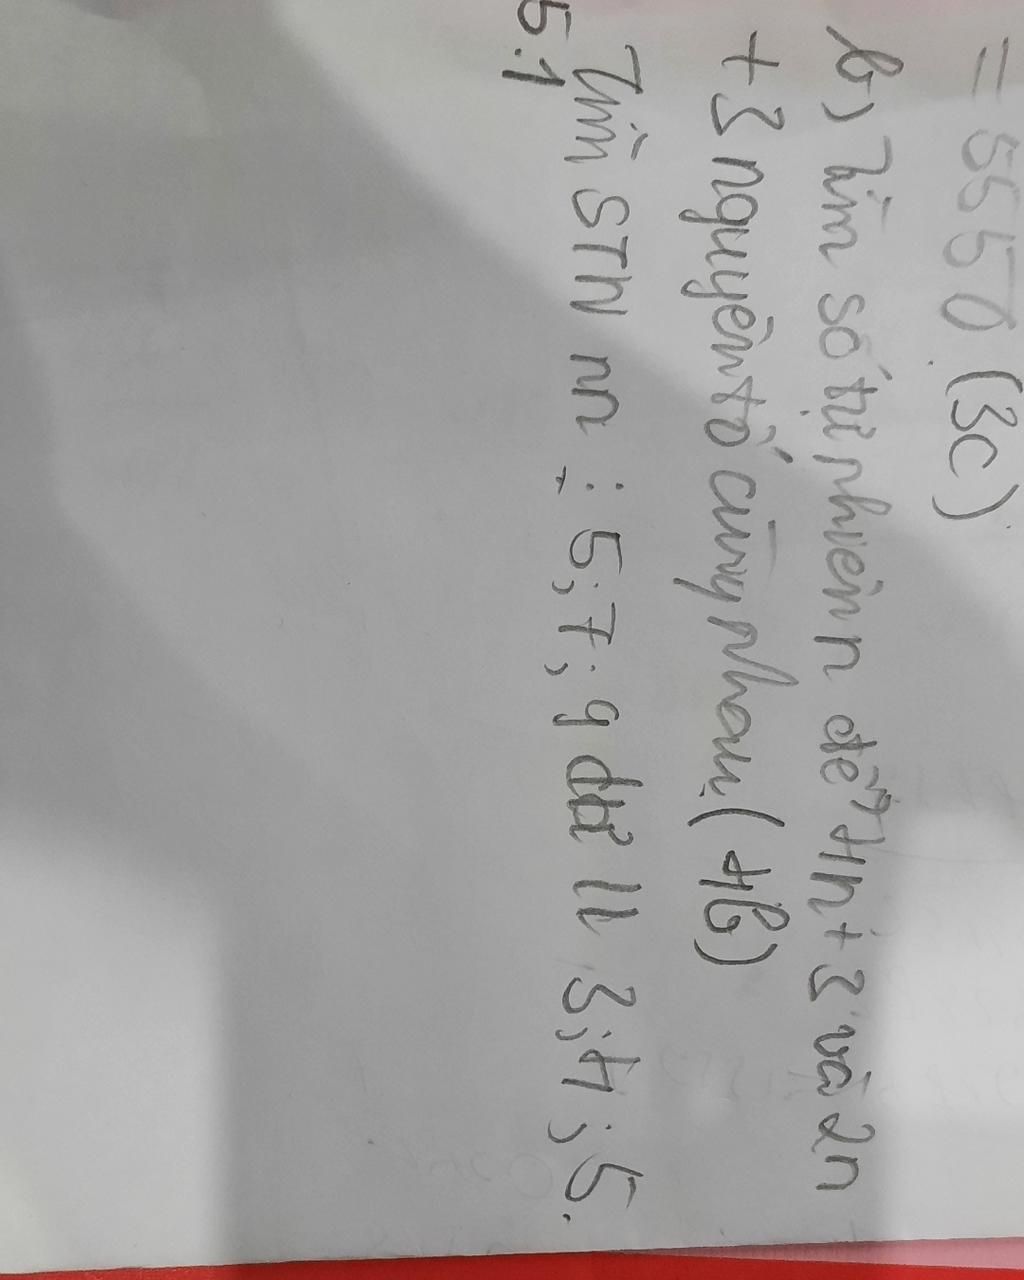 = 5550 (3C)
b) Tìm số tự nhiên n để 4n + 3 và 2n
+ 3 nguyên tố cùng nhau. (4B)
Tìm STN nn ⋮ 5; 7; 9 dư lll 3; 4; 5.
5.1